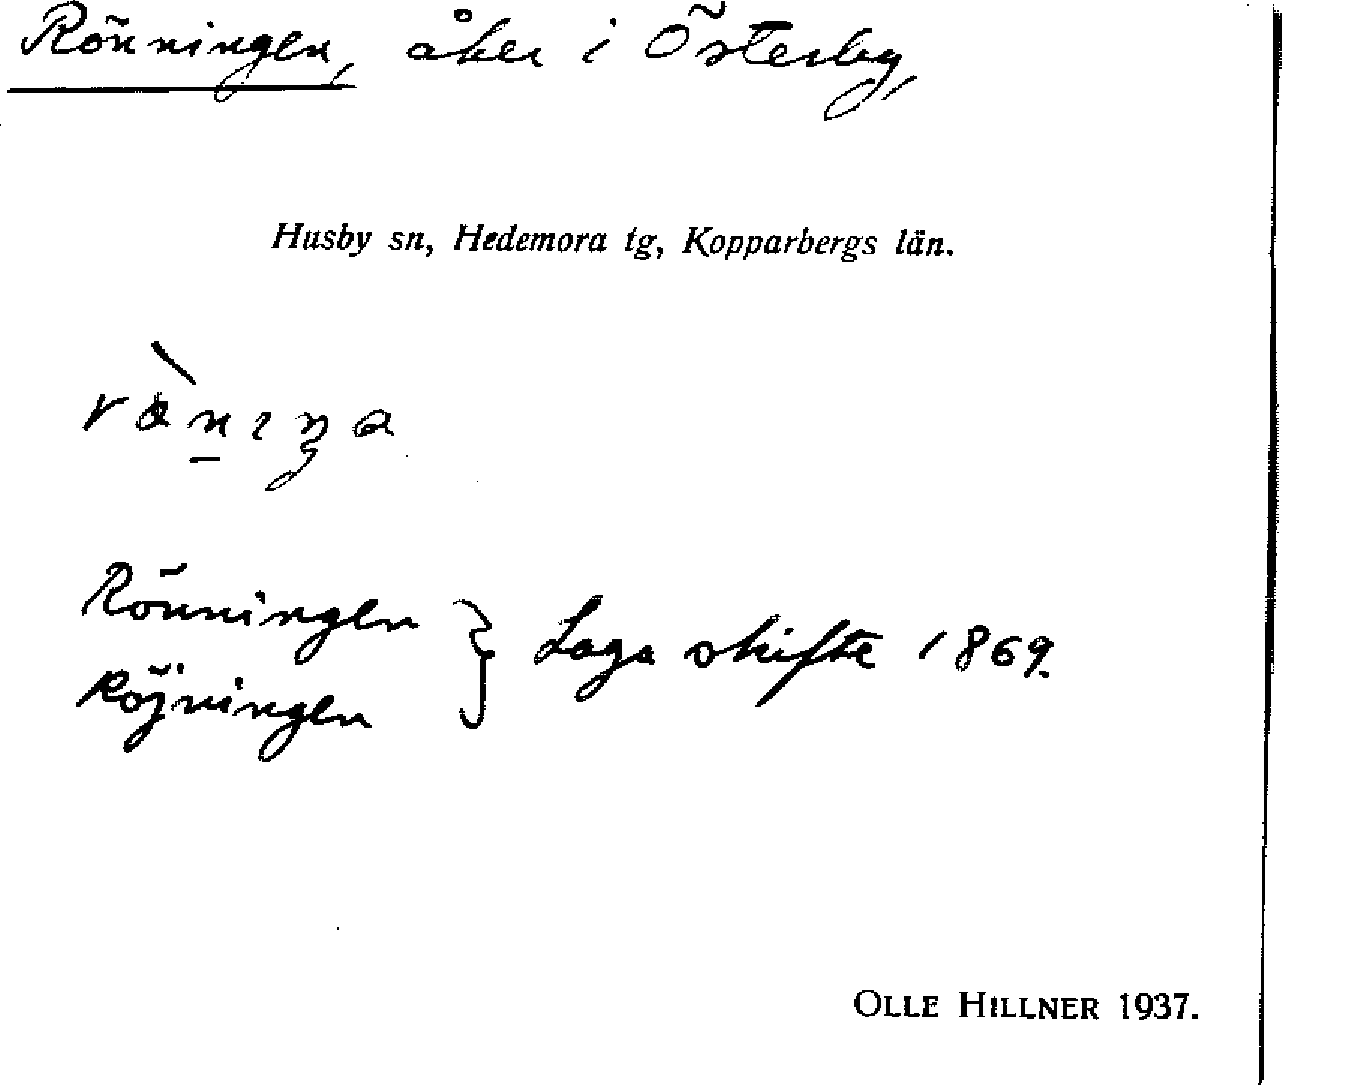 Rönningen, åker i Österby,
Husby sn, Hedemora tg, Kopparbergs län.
Rönningen
Röjningen } Laga skifte 1869.
OLLE HILLNER 1937.